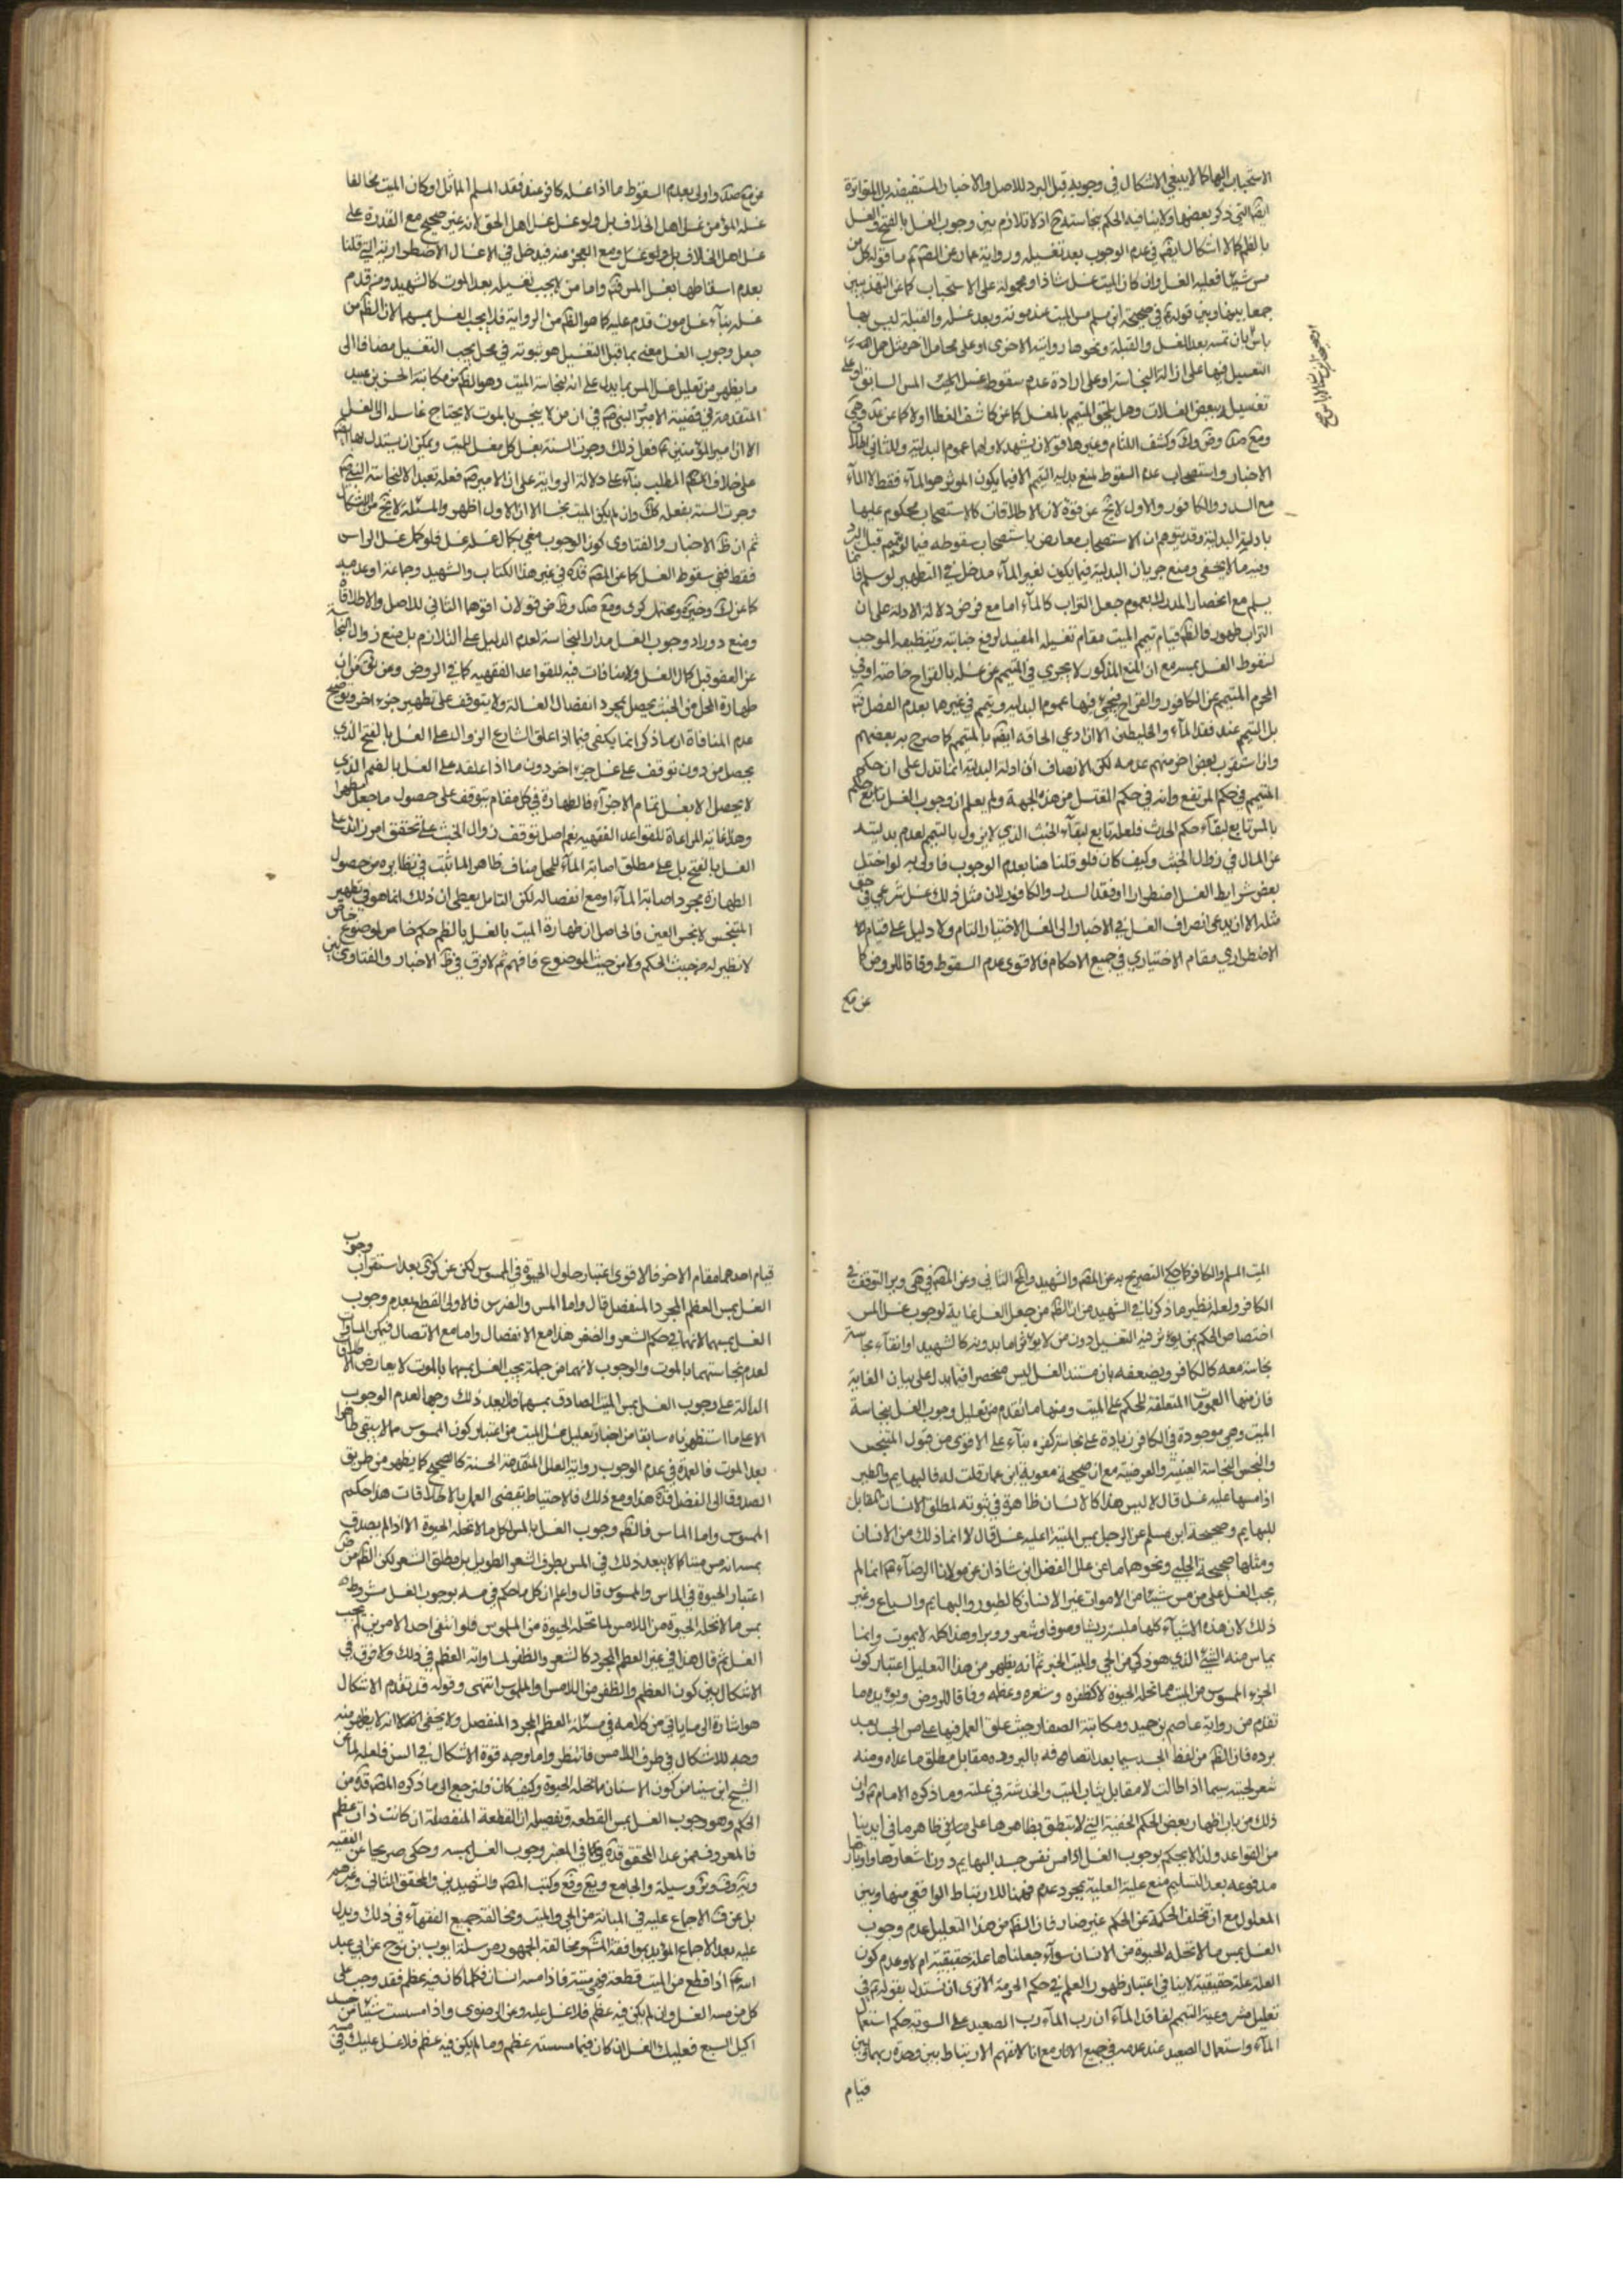 الاستحباب اليها كما لا ينبغي الاشكال في وجوبه قبل البرد للاصل والاخبار المستفيضة بل المتواترة
ايضا التي ذكر بعضها ولا ينافيه الحكم بنجاسته ح اذ لا تلازم بين وجوب الغسل بالفتح والغسل
بالضم كما لا اشكال ايضا في عدم الوجوب بعد تغسيله ورواية عمار عن الصادق ع ما قوله كل من
مس شيئا فعليه الغسل وان كان الميت غسل شاذ او محمولة على الاستحباب كما عن التهذيبين
جمعا بينها وبين قوله ع في صحيحة ابن مسلم مس الميت عند موته وبعد غسله والقبلة ليس بها
باس بان تمسه بعد الغسل والقبلة ونحوها روايته الاخرى او على محامل اخر مثل حمل
التغسيل فيها على ازالة النجاسة او على ارادة عدم سقوط غسل المس السابق او على
تغسيله ببعض الغسلات وهل يلحق المتيمم بالمغسل كما عن كاشف الغطاء او لا كما عن
وكشف اللثام وغيرها قولان يشهد لاولهما عموم البدلية وللثاني اطلاق
الاخبار واستصحاب عدم السقوط لمنع بدلية التيمم الا فيما يكون الموثر هو الماء فقط لا الماء
مع السدر والكافور والاول لا يخ عن قوة لان الاطلاقات كالاستصحاب محكوم عليها
بادلة البدلية وقد يتوهم ان الاستصحاب معارض باستصحاب سقوطه فيما لو يمم قبل البرد
وفيه ما لا يخفى ومنع جريان البدلية فيما يكون لغير الماء مدخل في التطهير لو سلم فانما
يسلم مع انحصار المدرك بعموم جعل التراب كالماء اما مع فرض دلالة الادلة على ان
التراب طهور فالظ قيام تيمم الميت مقام تغسيله المفيد لرفع جنابته وتنظيفه الموجب
لسقوط الغسل بمسه مع ان المنع المذكور لا يجري في المتيمم عن غسله بالقراح خاصة او في
المحرم المتيمم عن الكافور والقراح فيجئ فيها عموم البدلية ويتمم في غيرها بعدم الفصل فت
بل المتيمم عند فقد الماء والخليطين الا ان دعي الحاقه ايضا بالمتيمم كما صرح به بعضهم
وان استقرب بعض اخر منهم عدمه لكن الانصاف ان ادلة البدلية انما تدل على ان حكم
المتيمم في حكم المرتفع وانه في حكم المغتسل من هذه الجهة ولم يعلم ان وجوب الغسل تابع حكم
بالمس تابع لبقاء حكم الحدث فلعله تابع لبقاء الخبث الذي لا يزول بالتيمم لعدم بدليته
عن الماء في زوال الخبث وكيف كان فلو قلنا هنا بعدم الوجوب فاولى به لو اختل
بعض شرايط الغسل اضطرارا او فقد السدر والكافور لان مثل ذلك غسل شرعي في حق
مثله الا ان يدعى انصراف الغسل في الاخبار الى الغسل الاختياري التام ولا دليل على قيام
الاضطراري مقام الاختياري في جميع الاحكام فالاقوى عدم السقوط وفاقا للروض كما
عن مع
واولى بعدم السقوط ما اذا غسله كافر عند فقد المسلم المماثل او كان الميت مخالفا
غسله المؤمن غسل اهل الخلاف بل ولو غسل غسل اهل الحق لانه غير صحيح مع القدرة على
غسل اهل الخلاف بل ولو غسل ومع العجز عنه فيدخل في الاغسال الاضطرارية التي قلنا
بعدم اسقاطها لغسل المس فت واما من لا يجب تغسيله بعد الموت كالشهيد ومن قدم
غسله بناء غسل موت قدم عليه كما هو الظ من الرواية فلا يجب الغسل بمسهما لان الظ من
جعل وجوب الغسل مغيى بما قبل التغسيل هو ثبوته في محل يجب التغسيل مضافا الى
ما يظهر من تعليل غسل المس بما يدل على انه لنجاسة الميت وهو الظ من مكاتبة الحسن بن عبيد
المتقدمة في قضية الامير النبي ص في ان من لا ينجس بالموت لا يحتاج غاسله الى الغسل
الا ان امير المؤمنين ع فعل ذلك وجرت السنة بغسل كل مغسل للميت ويمكن ان يستدل بها ايضا
على خلاف المطلب بناء على دلالة الرواية على ان الامير ع فعله تعبدا لا لنجاسة النبي ص
وجرت السنة بفعله كك وان لم يكن الميت نجسا الا ان الاول اظهر والمسئلة لا تخ من اشكال
ثم ان ظ الاخبار والفتاوى كون الوجوب مغيى بكمال غسله غسل فلو كمل غسل الراس
فقط ففي سقوط الغسل كما عن المص قده في غير هذا الكتاب والشهيد وجماعة او عدمه
كما عن وغيره ومحتمل كرى قولان اقواهما الثاني للاصل والاطلاقات
ومنع دوران وجوب الغسل مدار النجاسة لعدم الدليل على التلازم بل منع زوال النجاسة
عن العضو قبل كمال الغسل ولا منافات فيه للقواعد الفقهيه كما في الروض ومن ان
طهارة المحل من الخبث يحصل بمجرد انفصال الغسالة ولا يتوقف على تطهير جزء اخر وتوضيح
عدم المنافاة ان ما ذكر انما يكفى فيما اذا علق الشارع الزوال على الغسل بالفتح الذي
يحصل من دون توقف على غسل جزء اخر دون ما اذا علقه على الغسل بالضم الذي
لا يحصل الا بغسل تمام الاجزاء فالطهارة في كل مقام تتوقف على حصول ما جعل مطهرا
وهذا غاية المراعاة للقواعد الفقهيه نعم اصل توقف زوال الخبث على تحقق امر زائد على
الغسل بالفتح بل على مطلق اصابة الماء للمحل مناف ظاهرا لما ثبت في نظايره من حصول
الطهارة بمجرد اصابة الماء او مع انفصاله لكن التامل يعطى ان ذلك انما هو في تطهير
المتنجس لا نجس العين فالحاصل ان طهارة الميت بالغسل بالضم حكم خاص لموضوع خاص
لا نظير له من حيث الحكم ولا من حيث الموضوع فافهم ثم لا فرق في ظ الاخبار والفتاوى بين
الميت المسلم والكافر كما حكي التصريح به عن المص والشهيد والمحقق الثاني وعن المص في هي وير التوقف في
الكافر ولعله نظير ما ذكرنا في الشهيد من ان الظ من جعل الغسل غاية لوجوب غسل المس
اختصاص الحكم بمن يؤثر فيه التغسيل دون من لا يؤثر اما بدونه كالشهيد او انتفاء نجاسة
نجاسة معه كالكافر ويضعفه بان مستند الغسل ليس منحصرا فيما يدل على بيان الغاية
فان منها العمومات المتعلقة للحكم على الميت ومنها ما تقدم من تعليل وجوب الغسل بنجاسة
الميت وهي موجودة في الكافر زيادة على نجاسة كفره بناء على الاقوى من قبول المتنجس
والنجس النجاسة العينية والعرضية مع ان صحيحة معوية ابن عمار قلت له فالبهايم والطير
اذا مسها عليه غسل قال لا ليس هذا كالانسان ظاهرة في ثبوته لمطلق الانسان المقابل
للبهايم وصحيحة ابن مسلم عن الرجل يمس الميتة اعليه غسل قال لا انما ذلك من الانسان
ومثلها صحيحة الحلبي ونحوهما ما عن علل الفضل ابن شاذان عن مولانا الرضا ع انما لم
يجب الغسل على من مس شيئا من الاموات غير الانسان كالطيور والبهايم والسباع وغير
ذلك لان هذه الاشياء كلها ملبسة ريشا وصوفا وشعر ووبرا وهذا كله لا يموت وانما
يماس منه الشيء الذي هو ذكي من الحي والميت الخبر ثم انه يظهر من هذا التعليل اعتبار كون
الجزء الممسوس من الميت مما تحله الحيوة لا كظفره وشعره وعظمه وفاقا للروض ويؤيده ما
تقدم من رواية عاصم بن حميد ومكاتبة الصفار حيث علق العمل فيها على مس الجسد بعد
برده فان الظ من لفظ الجسد سيما بعد اتصافه بالبرودة مقابل مطلق ما عداه ومنه
شعر لحيته سيما اذا طالت لا مقابل ثياب الميت والخدشة في علته وما ذكره الامام ع وان
ذلك من باب اظهار بعض الحكم الخفية التي لا ينطبق بظاهرها على ظاهر ما في ايدينا
من القواعد ولذا لا يحكم بوجوب الغسل اذا مس نفس جسد البهايم دون اشعارها واوبارها
مدفوعه بعد التسليم منع علية العلية بمجرد عدم فهمنا للارتباط الواقعي منها وبين
المعلول مع ان تخلف الحكمة عن الحكم غير ضار فان الظ من هذا التعليل عدم وجوب
الغسل بمس ما لا تحله الحيوة من الانسان سواء جعلناها علة حقيقية ام لا وعدم كون
العلة علة حقيقية لا ينافي اعتبار ظهور العلة في حكم الحرمة الا ترى ان نستدل بقوله ع في
تعليل مشروعية التيمم لفاقد الماء ان رب الماء رب الصعيد على السوية حكم استعمال
الماء واستعمال الصعيد عند عدمه في جميع الاثار مع انا لا نفهم الارتباط بين وحدة ربهما وبين
قيام
وجوب
قيام احدهما مقام الاخر فالاقوى اعتبار حلول الحيوة في الممسوس لكن عن كرى بعد استقراب
الغسل بمس العظم المجرد المنفصل قال واما المس والضرس فالاولى القطع بعدم وجوب
الغسل بمسهما لانهما في حكم الشعر والظفر هذا مع الانفصال واما مع الاتصال فيمكن المساوات
لعدم نجاستهما بالموت والوجوب لانهما من جملة يجب الغسل بمسها بالموت لا يعارض الاطلاق
الدالة على وجوب الغسل بمس الميت الصادق بمسهما فلا يبعد ذلك وجها لعدم الوجوب
الا على ما استظهرناه سابقا من اخبار تعليل غسل الميت من اعتبار كون الممسوس مما لا يبقى طاهرا
بعد الموت فالعمدة في عدم الوجوب رواية العلل المتقدمة الحسنة كالصحيح كما يظهر من طريق
الصدوق الى الفضل قده هذا ومع ذلك فالاحتياط يقتضى العمل بالاطلاقات هذا حكم
الممسوس واما الماس فالظ وجوب الغسل بالمس لكل ما لا تحله الحيوة الا اذا لم يصدق
بمسه انه مس ميتا كما لا يبعد ذلك في المس بطرف الشعر الطويل بل مطلق الشعر لكن الظ من
اعتبار الحيوة في الماس والممسوس قال واعلم ان كل ما حكم في مسه بوجوب الغسل مشروط
بمس ما لا تحله الحيوة من اللامس لما تحله الحيوة من الملموس فلو انتفى احد الامرين لم يجب
الغسل ثم قال هذا في غير العظم المجرد كالشعر والظفر لمساواته العظم في ذلك ولا فرق في
الاشكال بين كون العظم والظفر من اللامس او الملموس انتهى وقوله قد تقدم الاشكال
هو اشارة الى ما ياتي من كلامه في مسئلة العظم المجرد المنفصل ولا يخفى انه لا يظهر منه
وجه للاشكال في طرف اللامس فانتظر واما وجه قوة الاشكال في السن فلعله لما عن
الشيخ ابن سينا من كون الاسنان مما تحله الحيوة وكيف كان فلنرجع الى ما ذكره المص قده من
الحكم وهو وجوب الغسل بمس القطعة وتفصيله ان القطعة المنفصلة ان كانت ذات عظم
فالمعروف ممن عدا المحقق قده في المعتبر وجوب الغسل بمسه وحكى صريحا عن الفقيه
وسيلة والجامع وكتب المص والشهيدين والمحقق الثاني وغيرهم
بل عن ف الاجماع عليه في المبانة من الحي والميت ومخالفة جميع الفقهاء في ذلك ويدل
عليه بعد الاجماع المؤيد بموافقة المشهور ومخالفة الجمهور مرسلة ايوب بن نوح عن ابي عبد
الله ع اذا قطع من الميت قطعة فهي ميتة فاذا مسه انسان فكلما كان فيه عظم فقد وجب على
كل من مسه الغسل وان لم يكن فيه عظم فلا غسل عليه وعن الرضوى واذا مسست شيئا من جسد
اكيل السبع فعليك الغسل ان كان فيما مسسته عظم وما لم يكن فيه عظم فلا غسل عليك في مسه